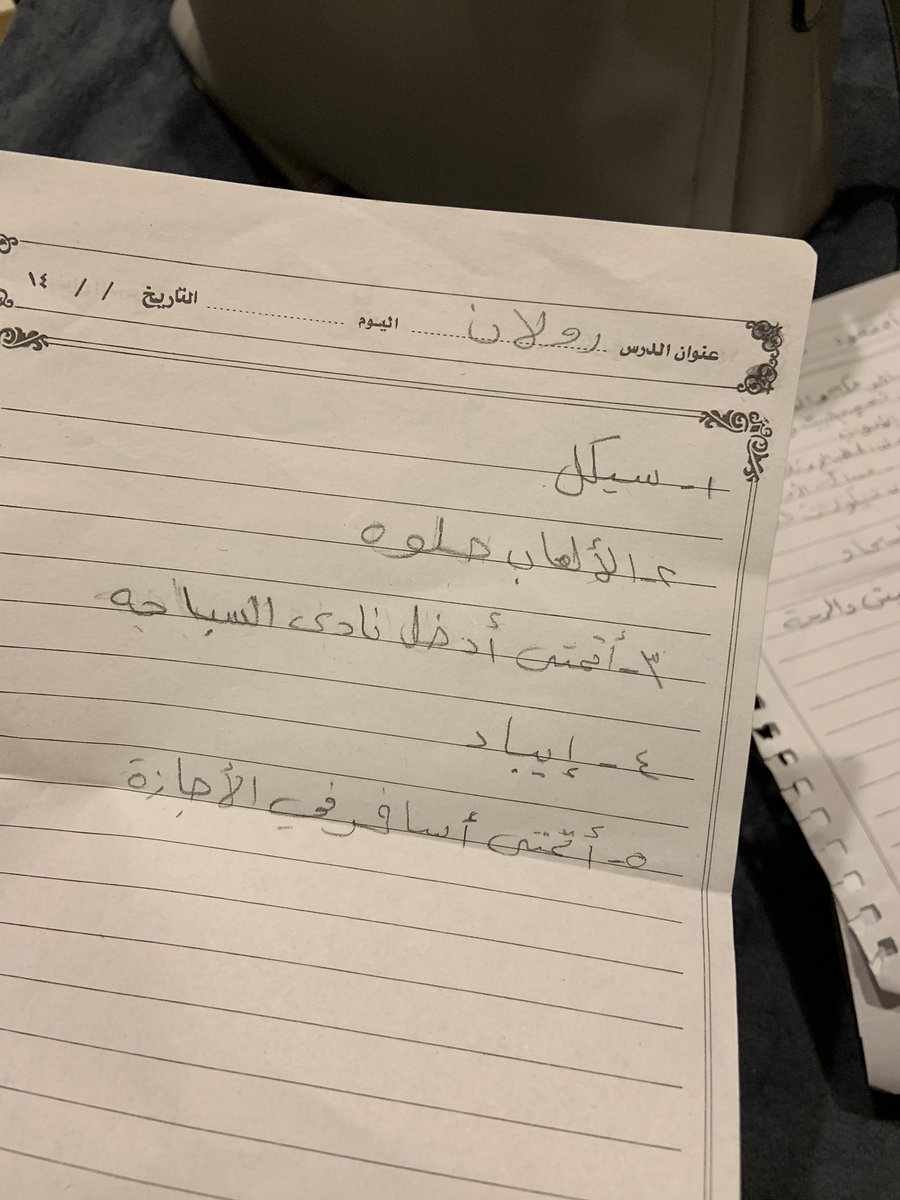 عنوان الدرس رولان اليوم التاريخ / / ١٤
١- سيكل
٢- الألعاب حلوه
٣- أتمنى أدخل نادى السباحه
٤- إيباد
٥- أتمنى أسافر في الأجازة